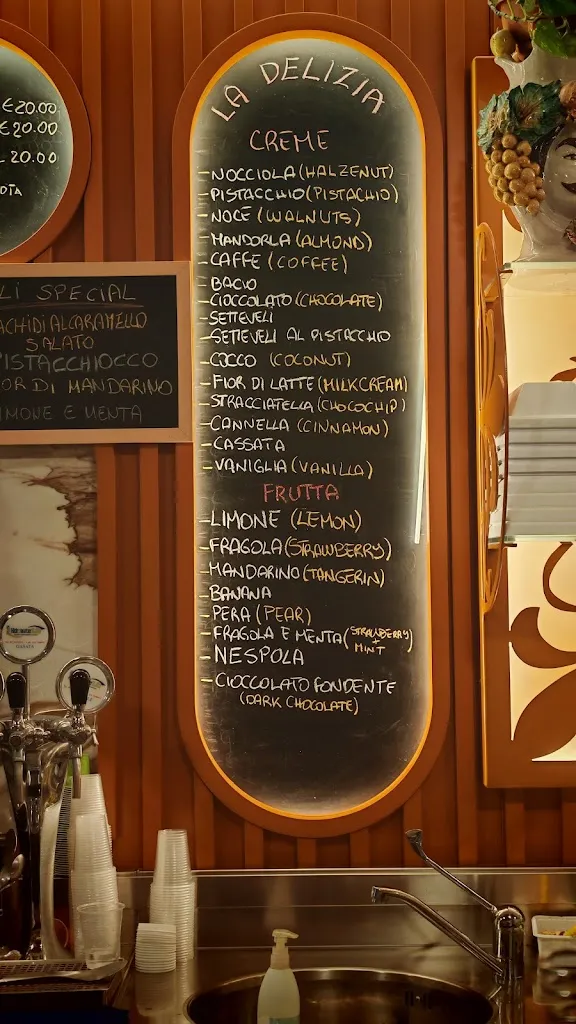 €20.00
€20.00
20.00
LI SPECIAL
ACHIDI AL CARAMELLO
SALATO
PISTACCHIOCCO
IOR DI MANDARINO
IMONE E MENTA
LA DELIZIA
CREME
-NOCCIOLA (HALZENUT)
-PISTACCHIO (PISTACHIO)
-NOCE (WALNUTS)
-MANDORLA (ALMOND)
-CAFFE (COFFEE)
-BACIO
-CIOCCOLATO (CHOCOLATE)
-SETTEVELI
-SETTEVELI AL PISTACCHIO
-COCCO (COCONUT)
-FIOR DI LATTE (MILKCREAM)
-STRACCIATELLA (CHOCOCHIP)
-CANNELLA (CINNAMON)
-CASSATA
-VANIGLIA (VANILLA)
FRUTTA
-LIMONE (LEMON)
-FRAGOLA (STRAWBERRY)
-MANDARINO (TANGERIN)
-BANANA
-PERA (PEAR)
-FRAGOLA E MENTA (STRAWBERRY + MINT)
-NESPOLA
-CIOCCOLATO FONDENTE
(DARK CHOCOLATE)